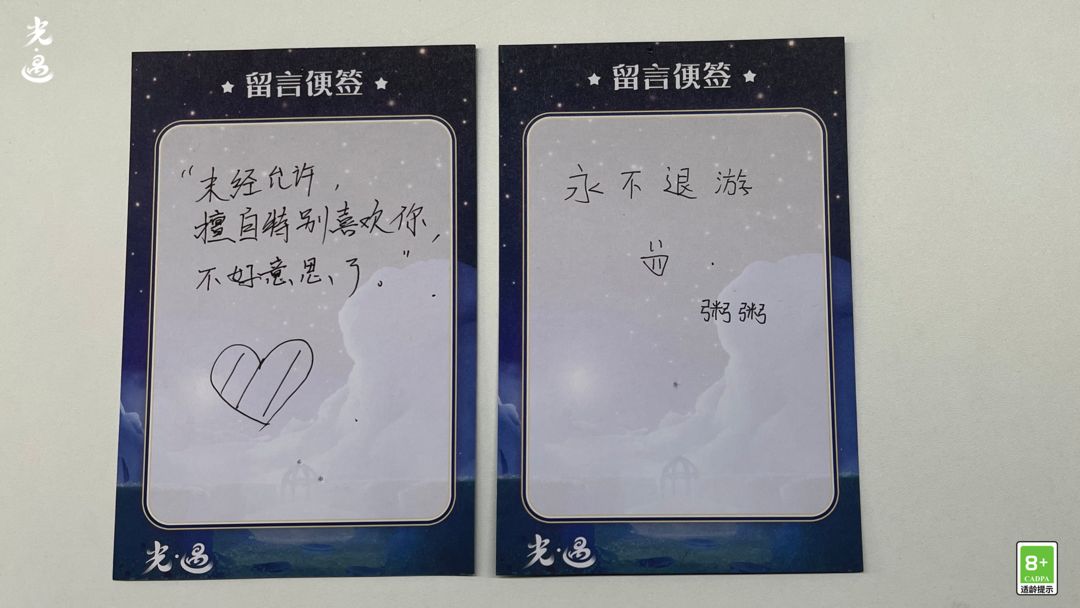 光·遇
留言便签
“未经允许，
擅自特别喜欢你，
不好意思、了。”
光·遇
留言便签
永不退游
粥粥
光·遇
8+
CADPA
适龄提示